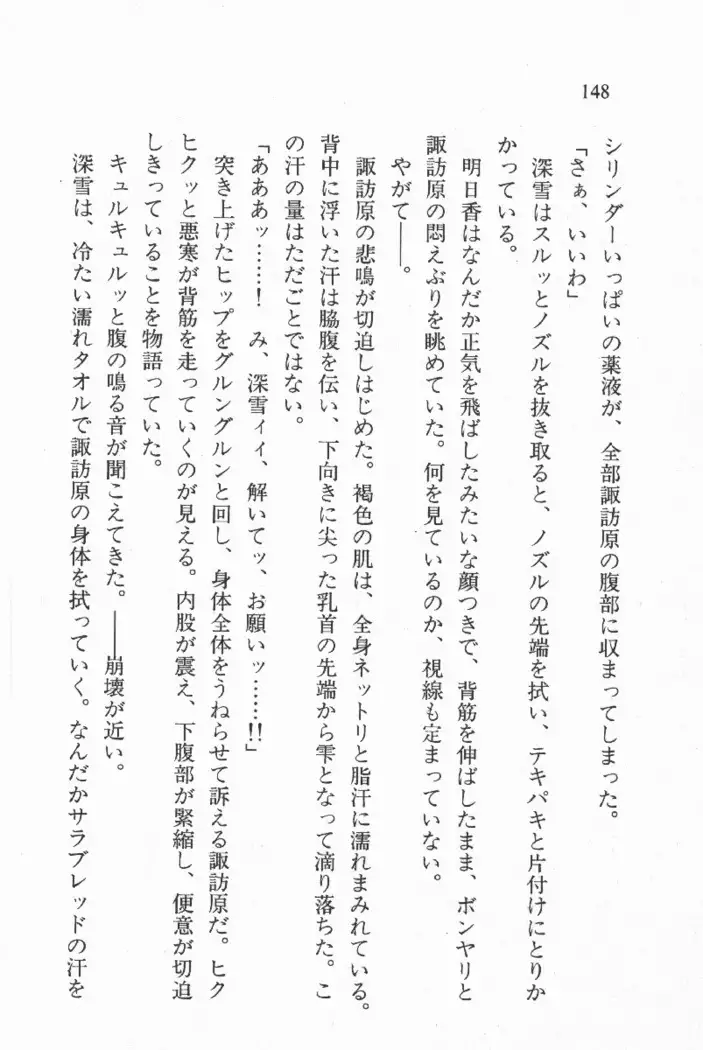 148
シリンダーいっぱいの薬液が、全部諏訪原の腹部に収まってしまった。
「さぁ、いいわ」
深雪はスルッとノズルを抜き取ると、ノズルの先端を拭い、テキパキと片付けにとりか
かっている。
明日香はなんだか正気を飛ばしたみたいな顔つきで、背筋を伸ばしたまま、ボンヤリと
諏訪原の悶えぶりを眺めていた。何を見ているのか、視線も定まっていない。
やがて――。
諏訪原の悲鳴が切迫しはじめた。褐色の肌は、全身ネットリと脂汗に濡れまみれている。
背中に浮いた汗は脇腹を伝い、下向きに尖った乳首の先端から雫となって滴り落ちた。こ
の汗の量はただごとではない。
「あああッ……！　み、深雪ィィ、解いてッ、お願いッ……!!」
突き上げたヒップをグルングルンと回し、身体全体をうねらせて訴える諏訪原だ。ヒク
ヒクッと悪寒が背筋を走っていくのが見える。内股が震え、下腹部が緊縮し、便意が切迫
しきっていることを物語っていた。
キュルキュルッと腹の鳴る音が聞こえてきた。――崩壊が近い。
深雪は、冷たい濡れタオルで諏訪原の身体を拭っていく。なんだかサラブレッドの汗を